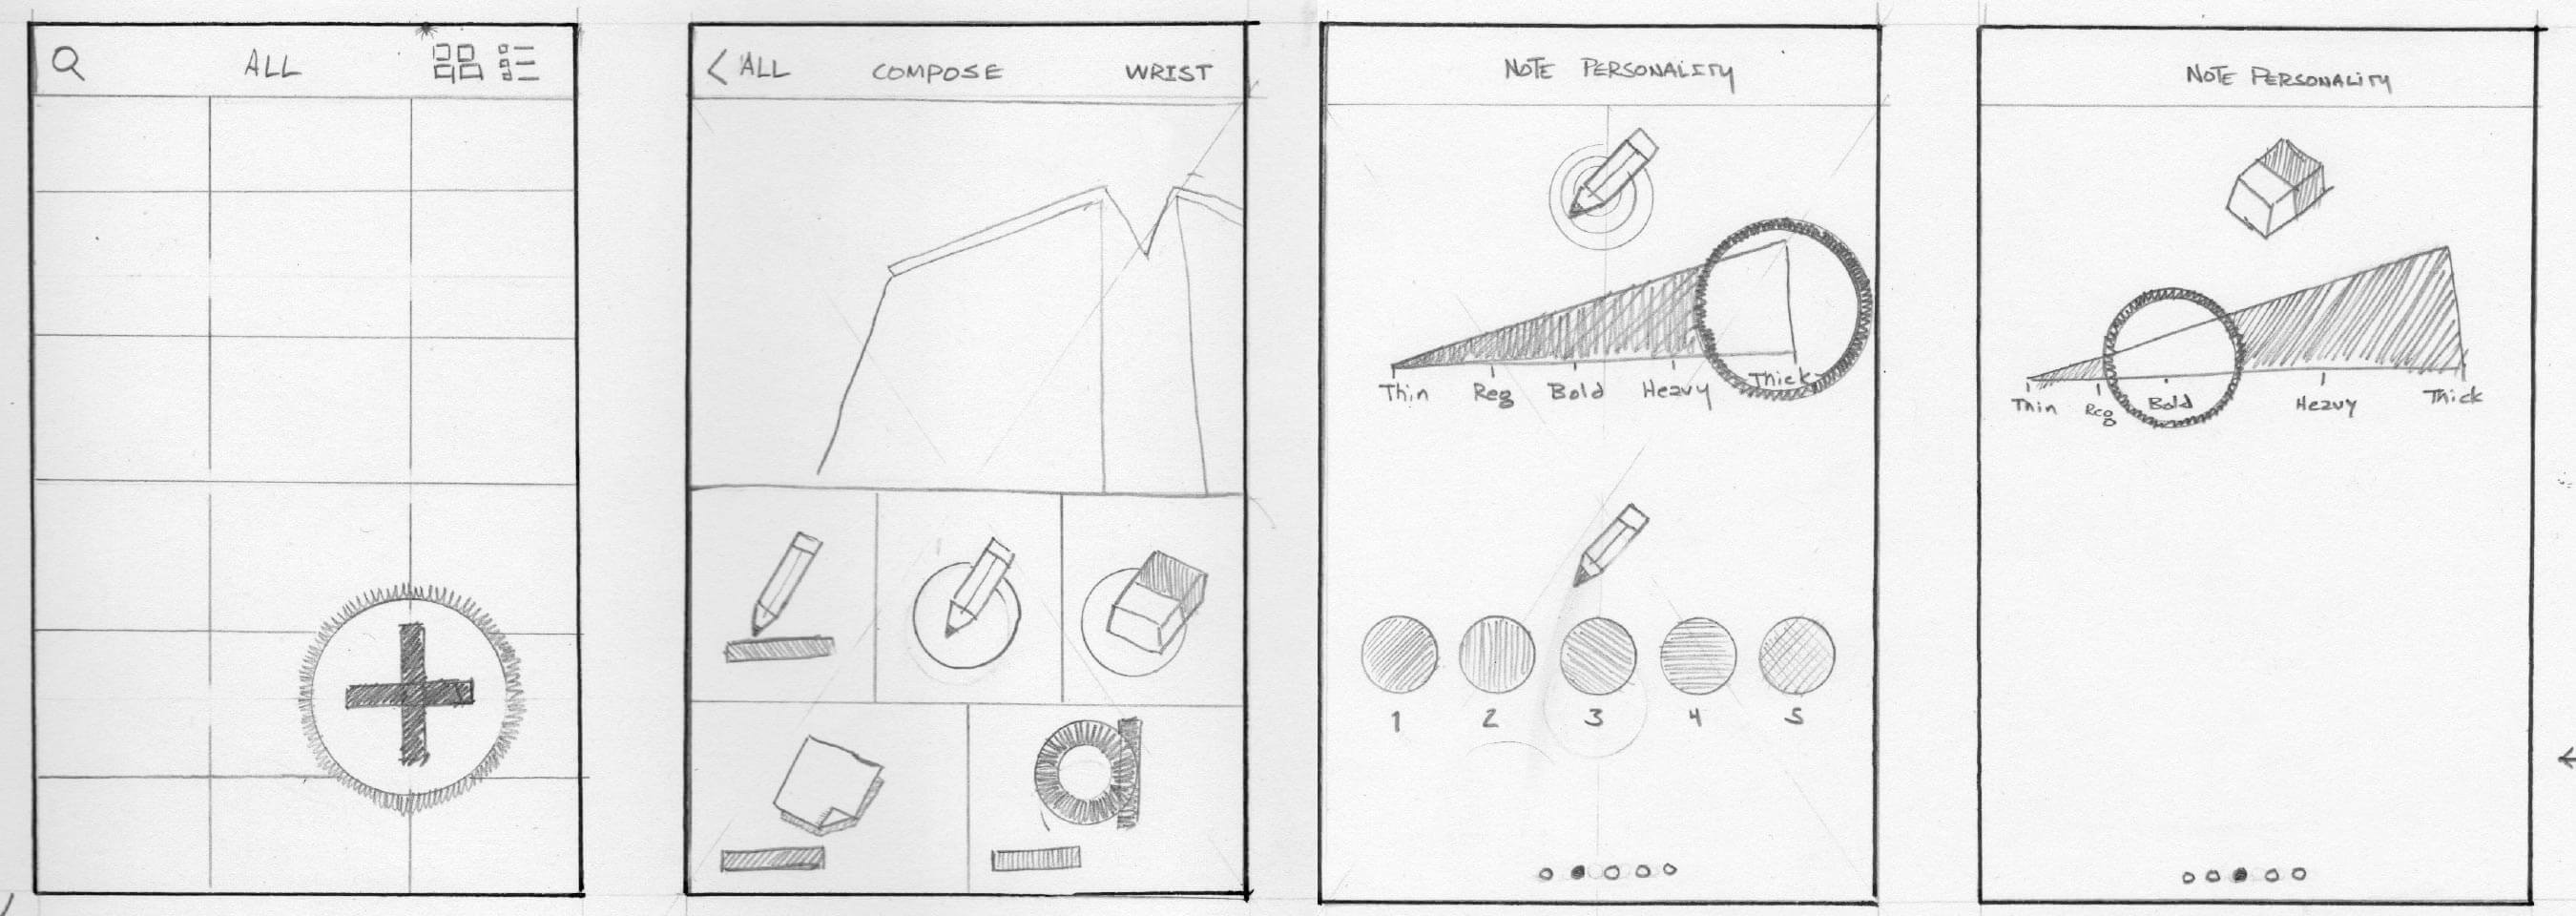 ALL
< ALL COMPOSE WRIST
NOTE PERSONALITY
Thin Reg Bold Heavy Thick
1 2 3 4 5
NOTE PERSONALITY
Thin Reg Bold Heavy Thick